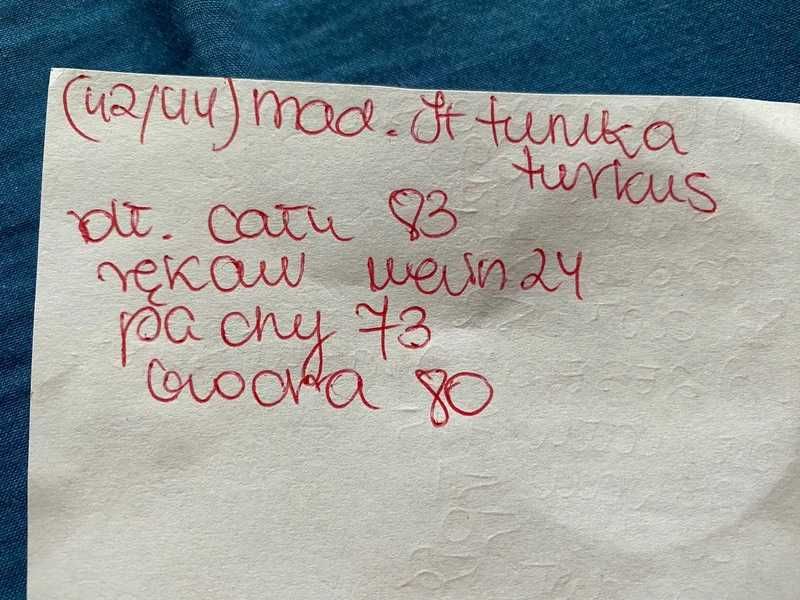 (42/44) mad. It tunika
turkus
dł. całk 83
rękaw wewn 24
pachy 73
biodra 80